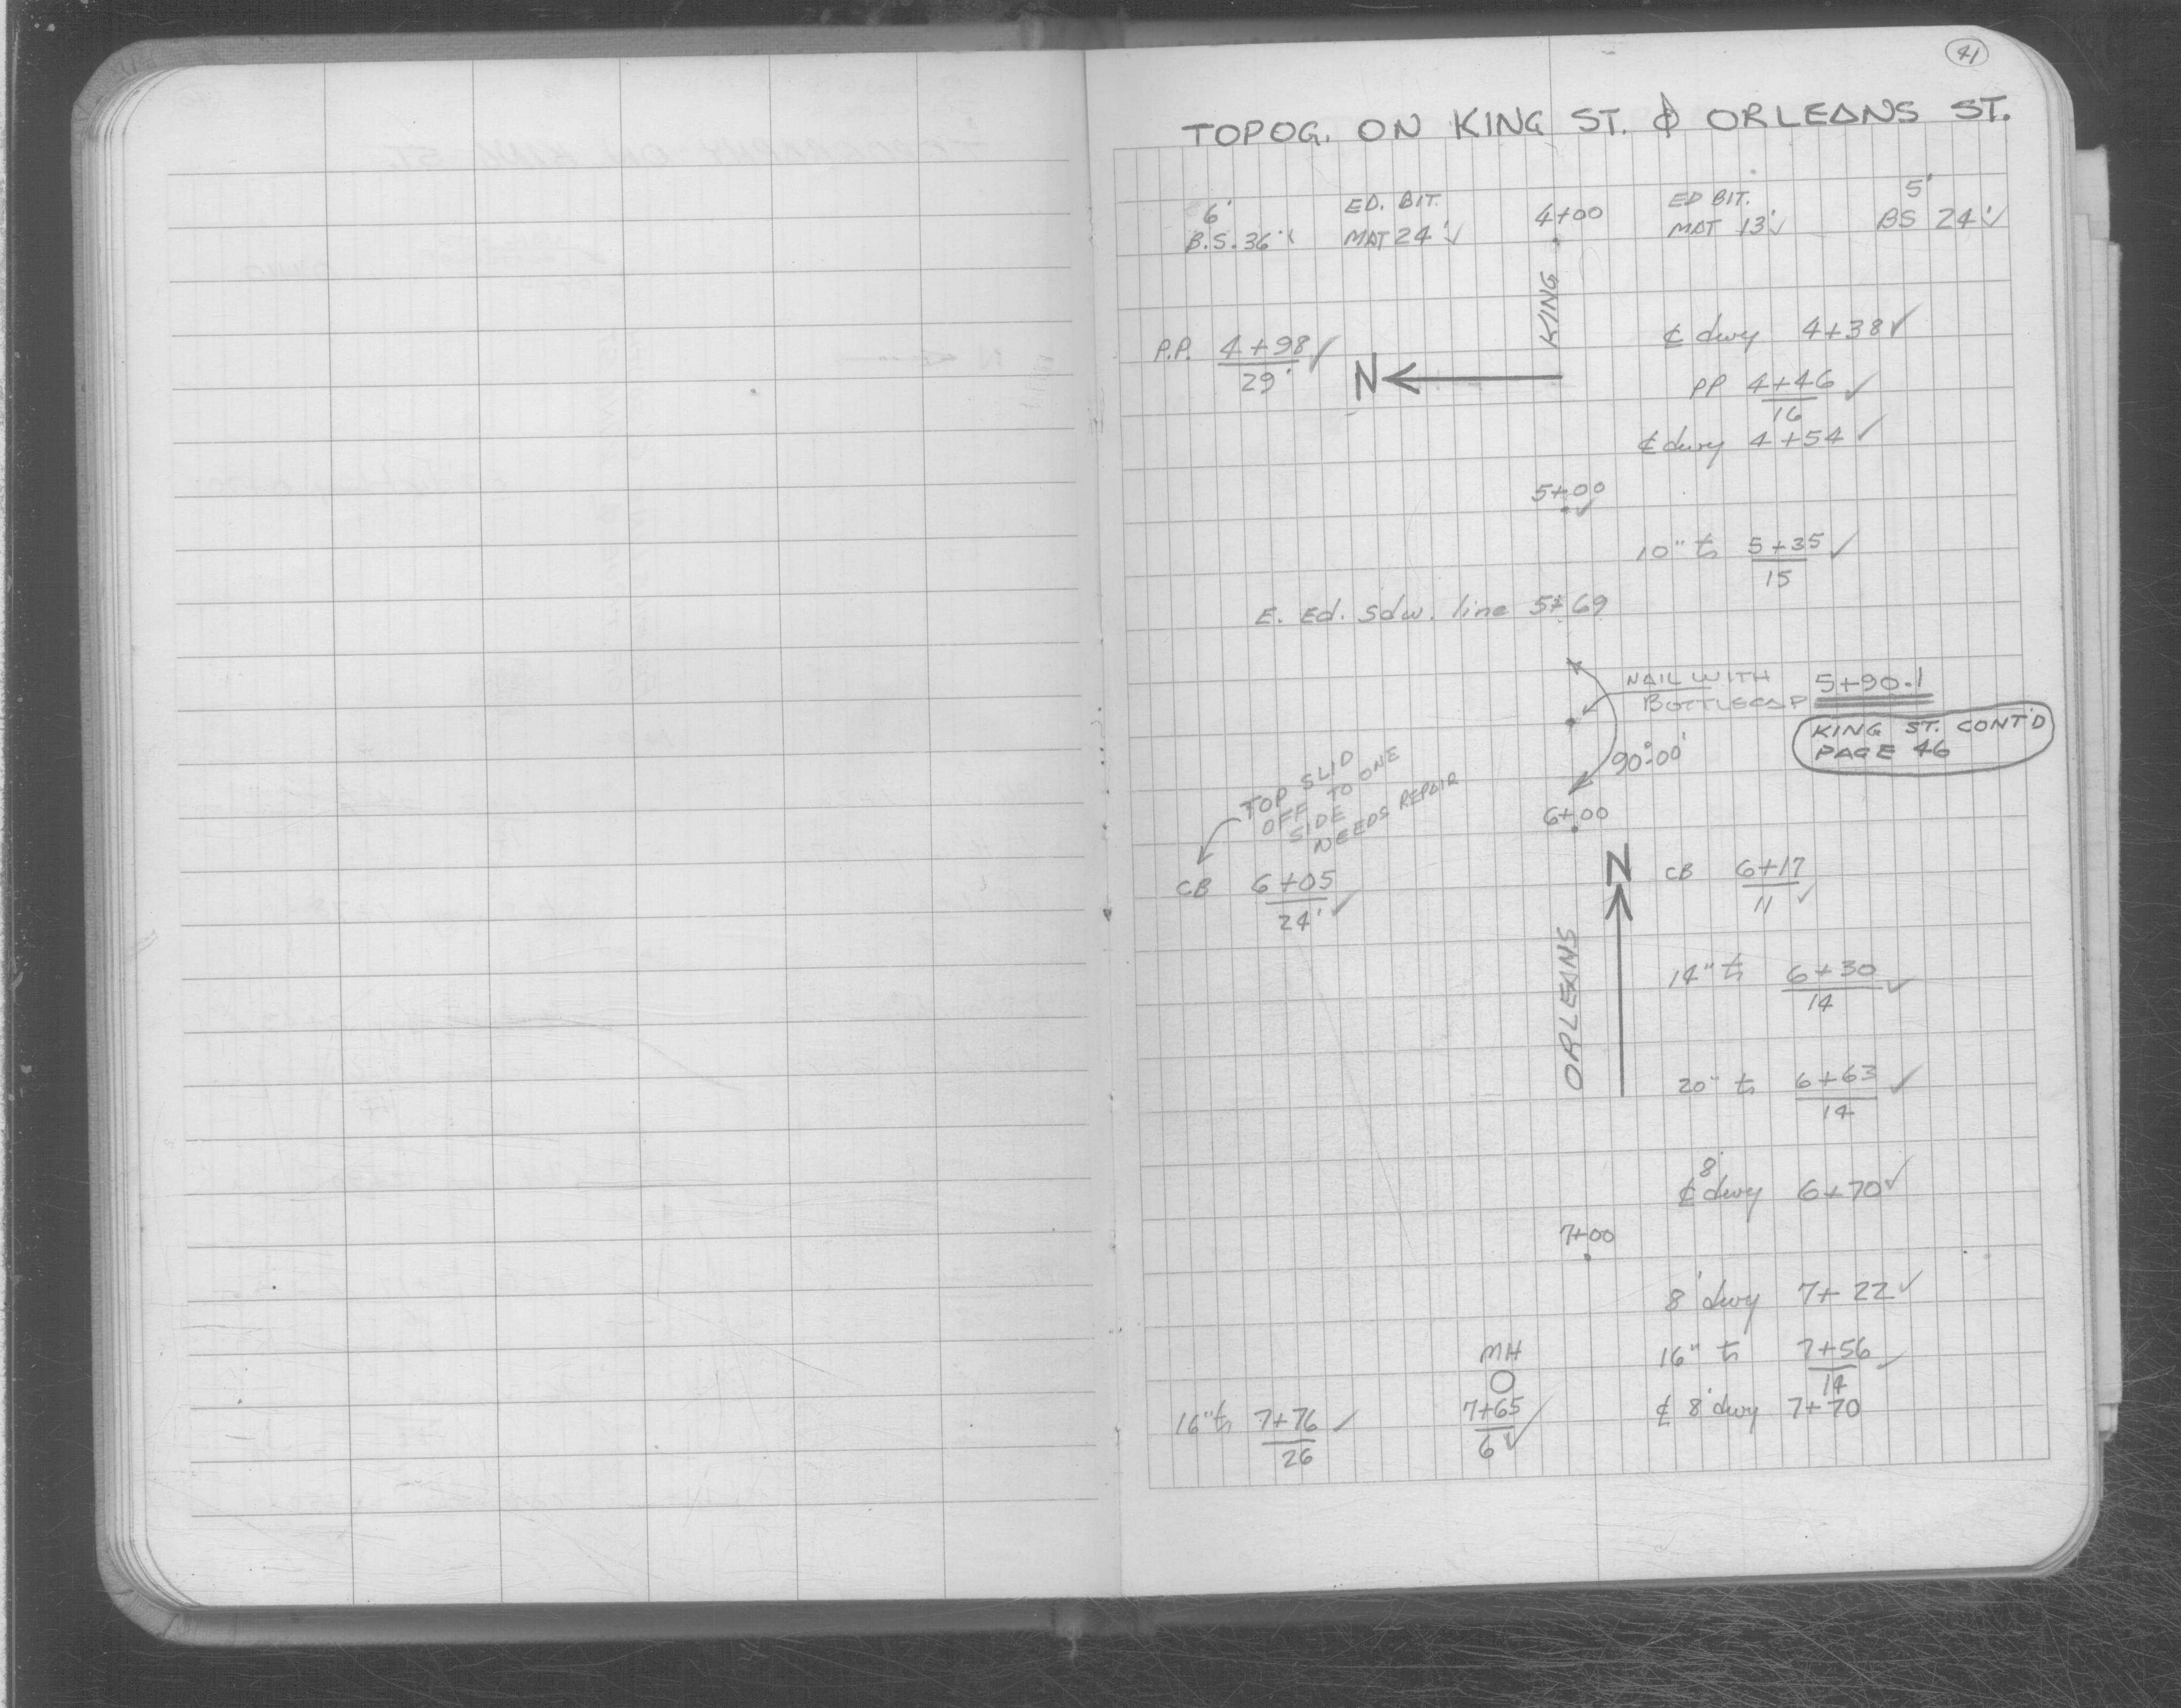 41
TOPOG. ON KING ST. & ORLEANS ST.
6' ED. BIT. 4+00 ED BIT. 5'
B.S. 36' MAT 24' ✓ MAT 13' ✓ BS 24' ✓
KING
℄ dwy 4+38 ✓
P.P. 4+98 ✓
29'
N
PP 4+46 ✓
16
℄ dwy 4+54 ✓
5+00
✓
10" tr 5+35 ✓
15
E. Ed. Sdw. line 5+69
NAIL WITH
BOTTLECAP 5+90.1
KING ST. CONT'D
PAGE 46
90°00'
TOP SLID
OFF TO ONE
SIDE
NEEDS REPAIR
6+00
CB 6+05
24' ✓
N
CB 6+17
11 ✓
ORLEANS
14" tr 6+30 ✓
14
20" tr 6+63 ✓
14
8'
℄ dwy 6+70 ✓
7+00
8' dwy 7+22 ✓
MH
16" tr 7+56 ✓
14
16" tr 7+76 ✓
26
7+65
6 ✓
℄ 8' dwy 7+70